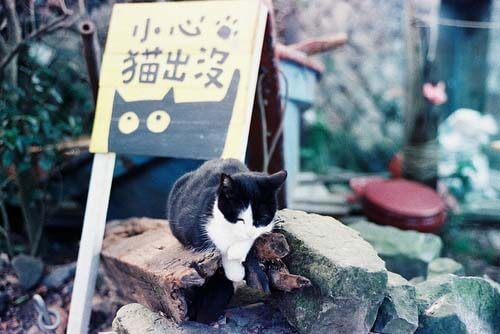 小心
猫出沒